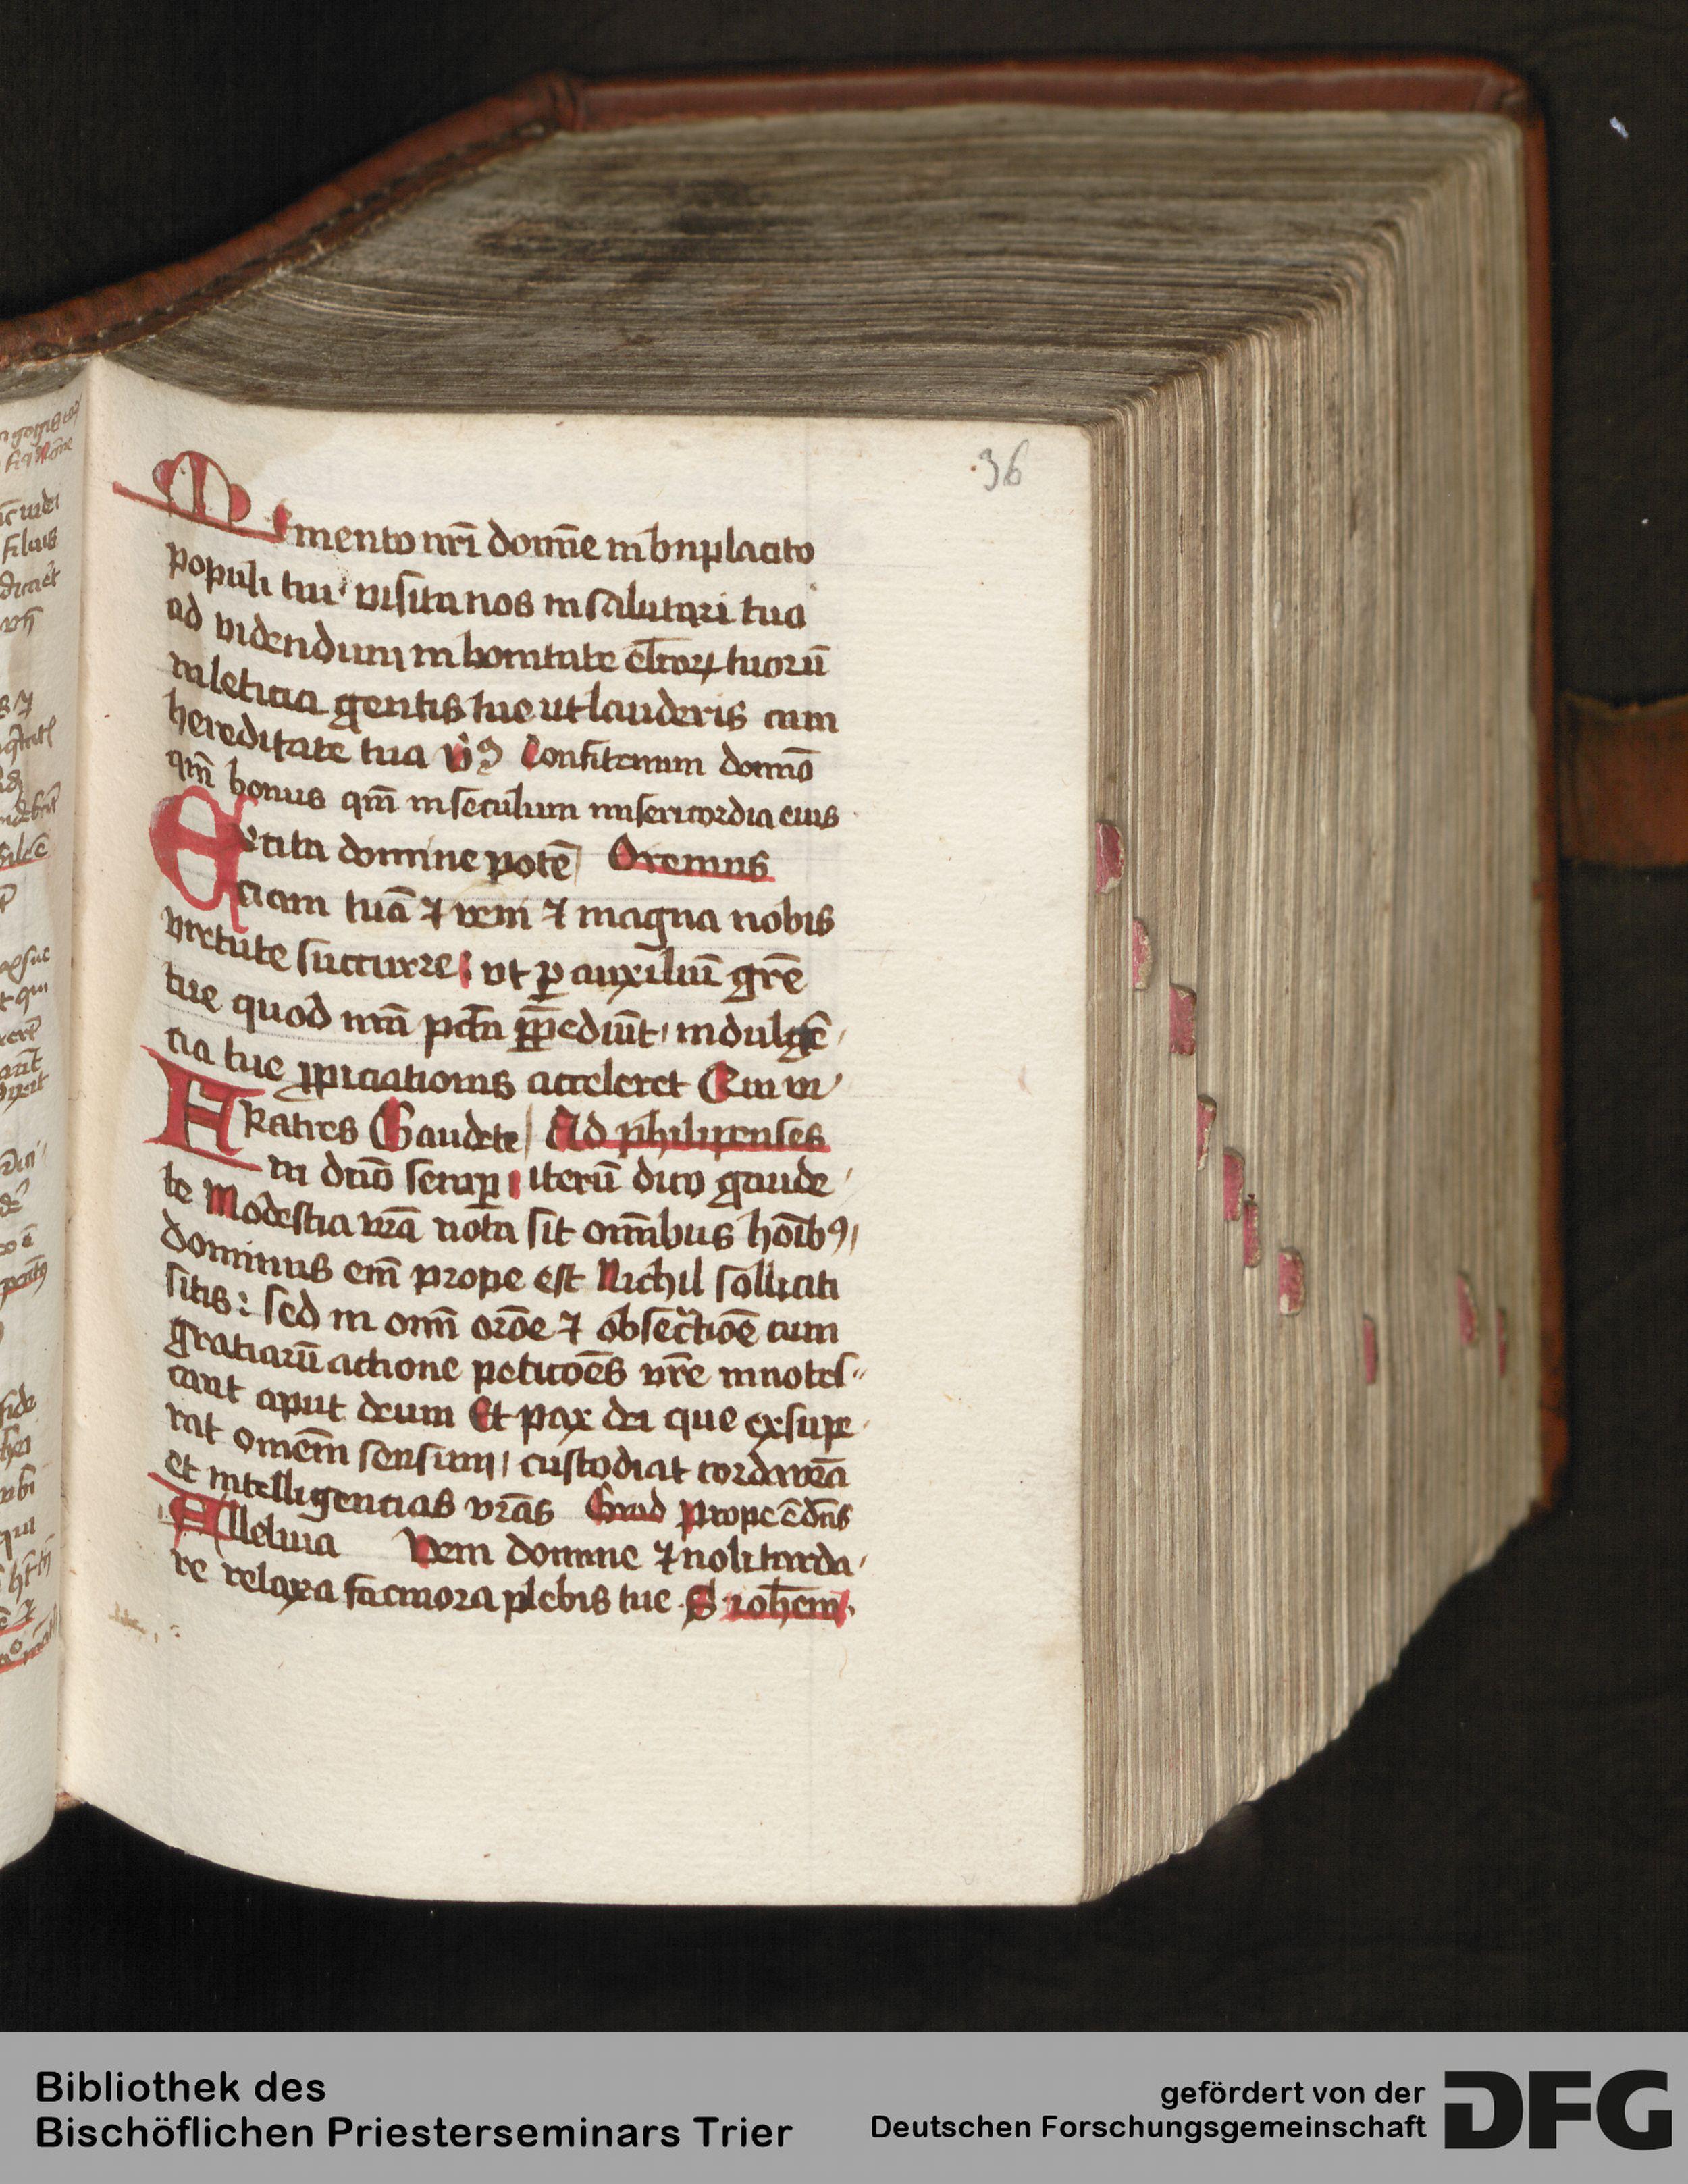 36
Memento nrī domīne in bn̄placito
populi tui visita nos in salutari tuo
ad videndum in bonitate elc̄tor̄ tuorū
in leticia gentis tue ut lauderis cum
hereditate tua v̉s Confitemini domīo
qm̄ bonus qm̄ in seculum misericordia eius
Excita domine potē Oremus
ciam tuā ⁊ veni ⁊ magna nobis
virtute succurre ut ꝑ auxiliū grē
tue quod nrā pctā p̄pediūt indulgē
cia tue ꝓpiciationis acceleret Qui vi
Fratres Gaudete Ad philipenses
in dnō semꝑ iterū dico gaude
te Modestia vrā nota sit omībus hoībꝰ
dominus em̄ prope est Nichil solliciti
sitis: sed in omī orōe ⁊ obsecratōe cum
gratiarū actione peticoēs vrē innotes
cant aput deum Et pax dei que exsupe
rat omnēm sensum custodiat corda vrā
et intelligencias vrās Grad Prope ē dn̄s
Alleluia Veni domine ⁊ noli tarda
re relaxa facinora plebis tue S iohem̄
Bibliothek des
Bischöflichen Priesterseminars Trier
gefördert von der
Deutschen Forschungsgemeinschaft
DFG